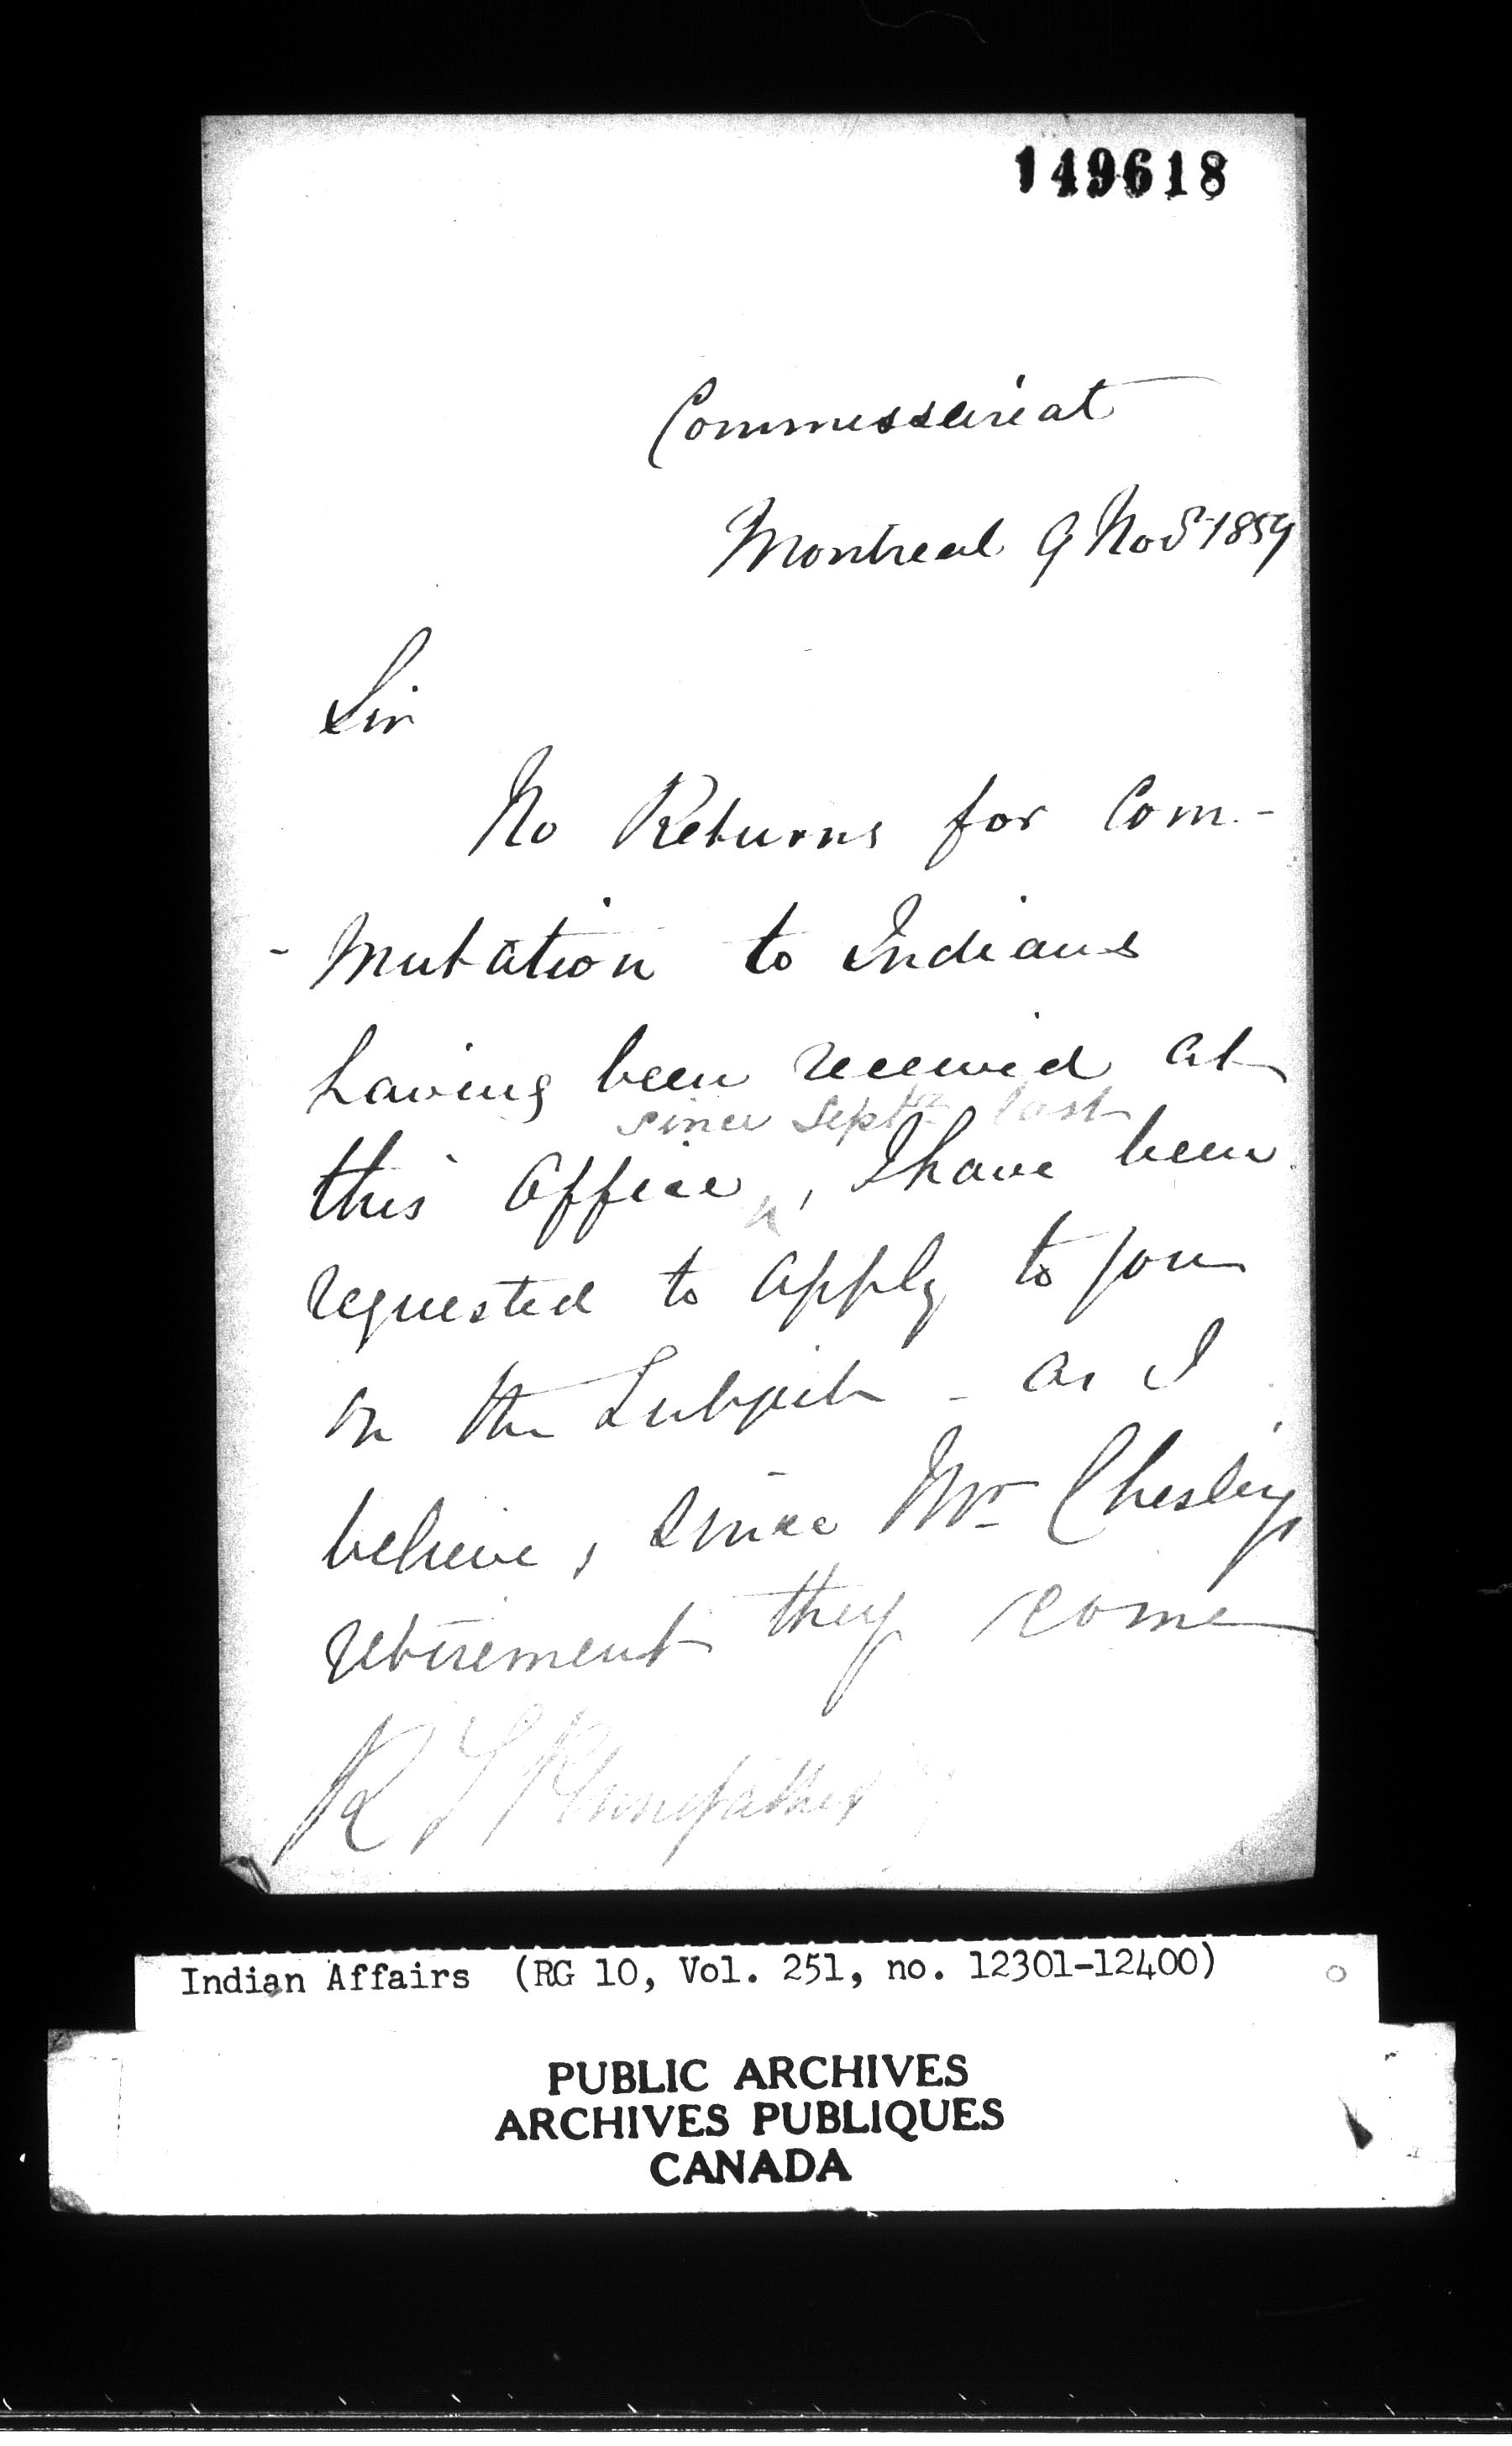 149618
Commissariat
Montreal 9 Nov 1859
Sir
No Returns for Com-
-mutation to Indians
having been received at
since Septr last
this Office, I have been
requested to apply to you
on the Subject - as I
believe, since Mr Chesley's
retirement they come
R T Pennefather
Indian Affairs (RG 10, Vol. 251, no. 12301-12400)
PUBLIC ARCHIVES
ARCHIVES PUBLIQUES
CANADA